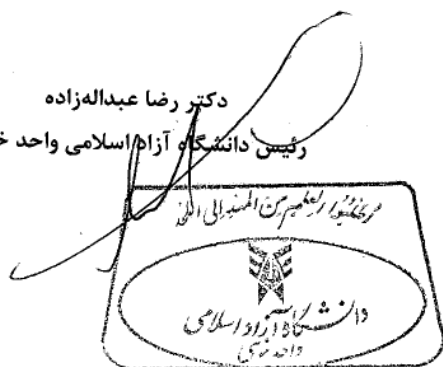 دکتر رضا عبداله‌زاده
رئیس دانشگاه آزاد اسلامی واحد خ
دانشگاه آزاد اسلامی
واحد خوی